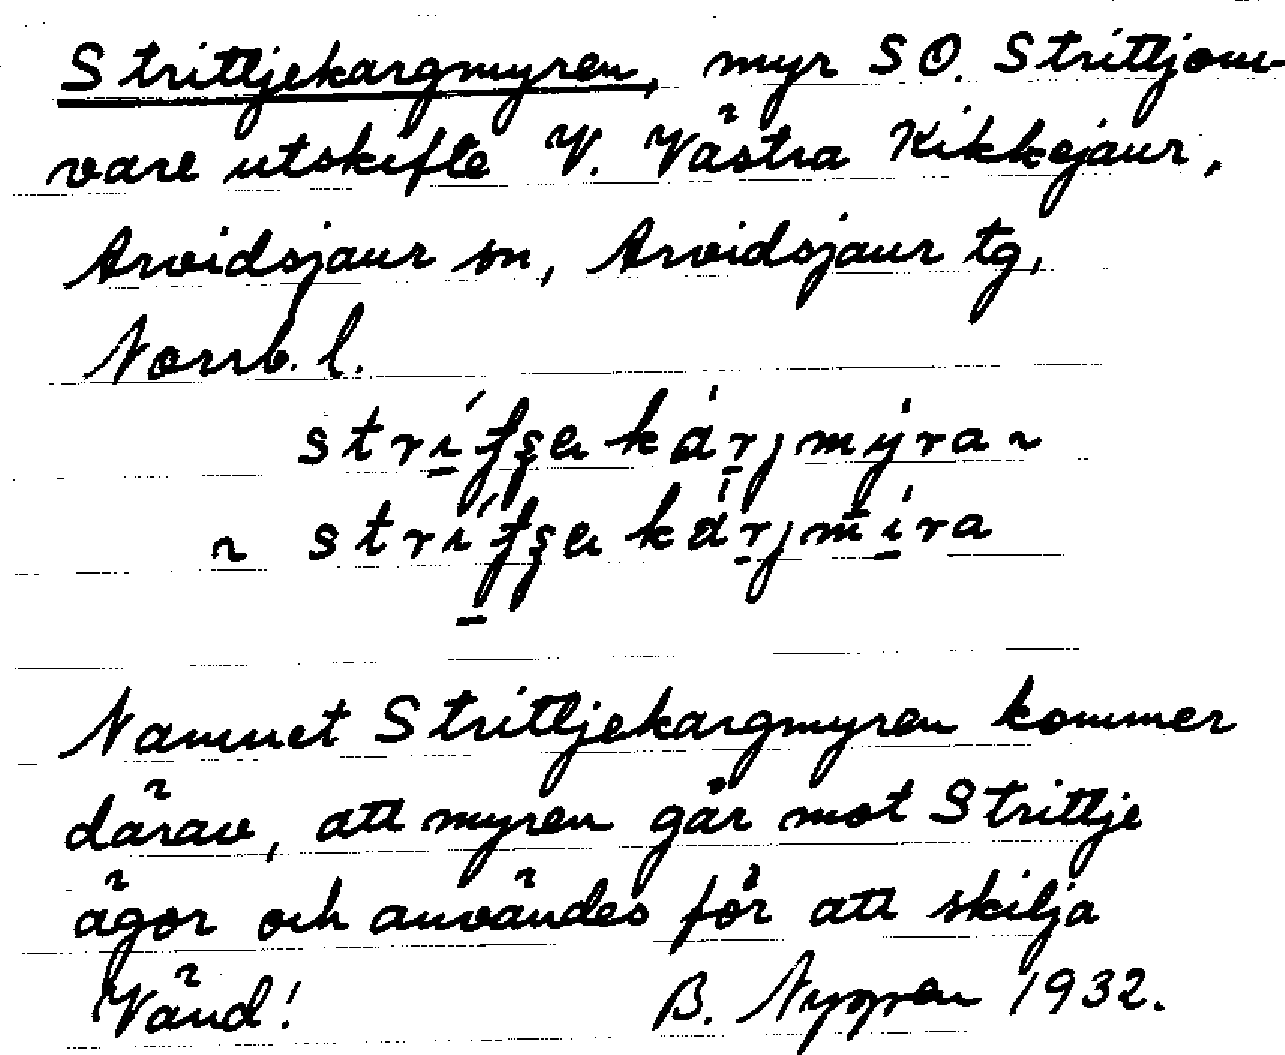 Strittjekargmyren, myr S O. Strittjom-
vare utskifte V. Västra Kikkejaur,
Arvidsjaur sn, Arvidsjaur tg,
Norrb. l.
Namnet Strittjekargmyren kommer
därav, att myren går mot Strittje
ägor och användes för att skilja
Vänd! B. Nygren 1932.